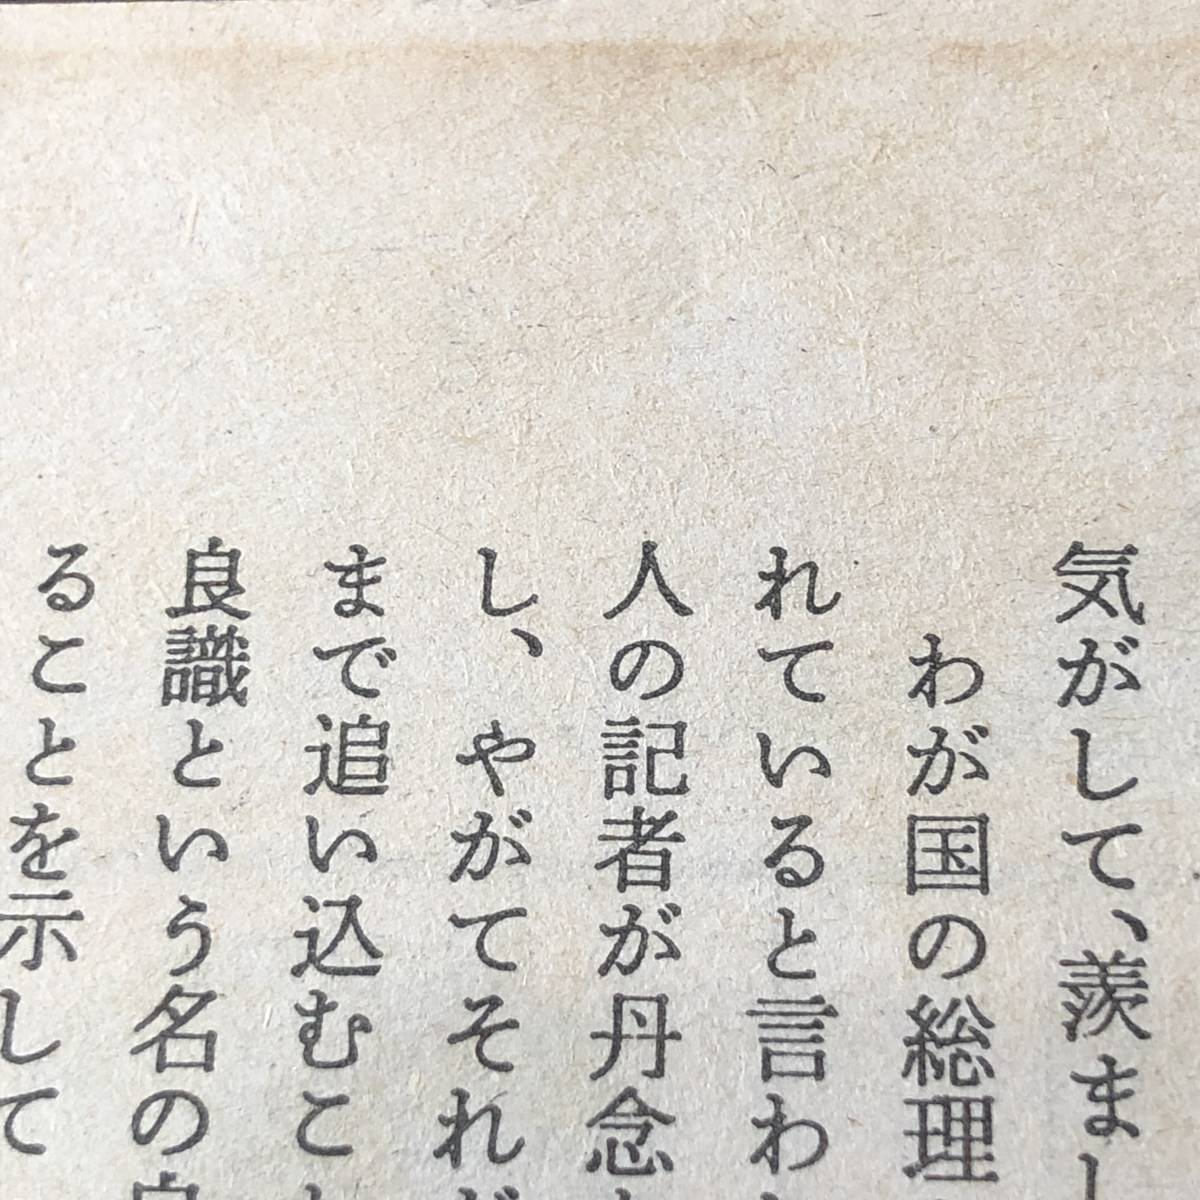 気がして、羨まし
わが国の総理
れていると言われ
人の記者が丹念
し、やがてそれ
まで追い込むこ
良識という名の
ることを示して